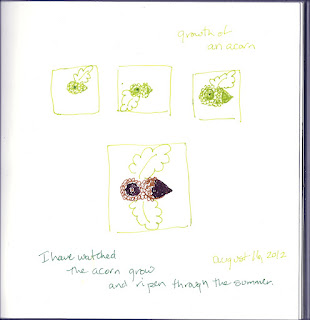 growth of
an acorn
I have watched
the acorn grow
and ripen through the summer.
august 16, 2012